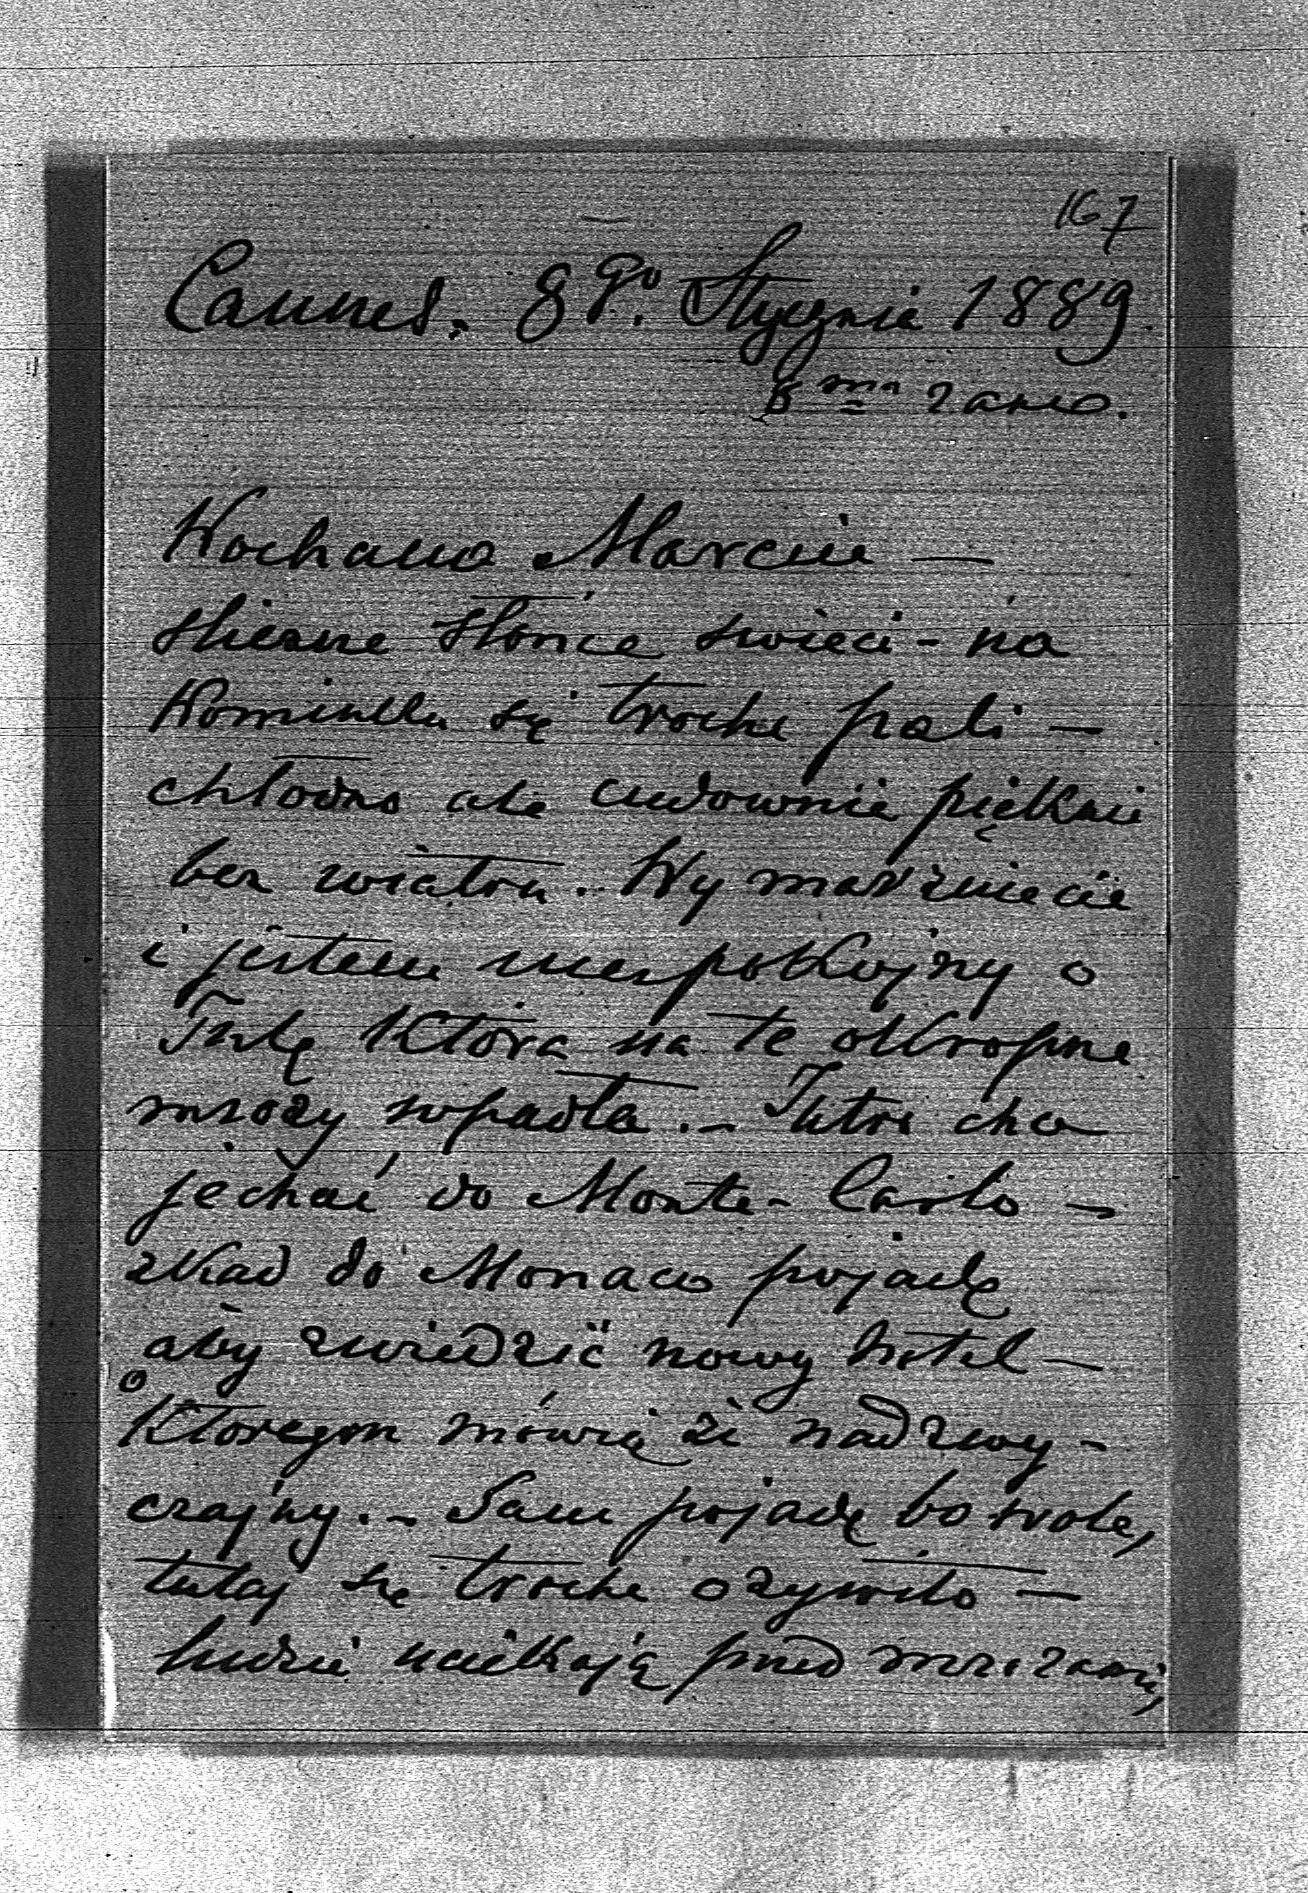 167
Cannes. 8go. Stycznia 1889.
8ma rano.
Kochana Marciu —
śliczne słońce świeci - na
Kominku się trochę pali —
chłodno ale cudownie pięknie
bez wiatru. - Wy marzniecie
i jestem niespokojny o
Tulę która na te okropne
mrozy wpadła. - Jutro chcę
jechać do Monte-Carlo —
zkąd do Monaco pojadę
aby zwiedzić nowy hotel —
o
któregom mówią że nadzwy-
czajny. - Sam pojadę bo wolę,
tutaj się trochę ożywiło —
ludzie uciekają przed mrozami,